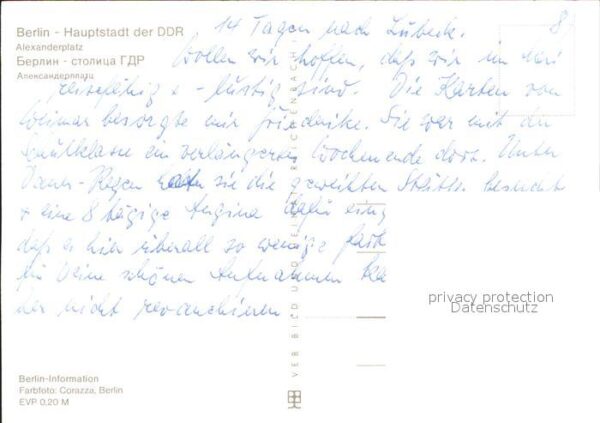 Berlin - Hauptstadt der DDR
Alexanderplatz
Берлин - столица ГДР
Александерплатц
8)
14 Tagen nach Lübeck.
Wollen wir hoffen, daß wir im Mai
reisefähig + -lustig sind. Die Karten von
Weimar besorgte mir Friederike. Sie war mit der
Schulklasse ein verlängertes Wochenende dort. Unter
Dauer-Regen sie die geweihten Stätten besucht
+ eine 8 tägige Angina dafür
daß es hier überall so wenige
für Deine schönen Aufnahmen
der nicht revanchieren
VERBILD UND
privacy protection
Datenschutz
Berlin-Information
Farbfoto: Corazza, Berlin
EVP 0,20 M